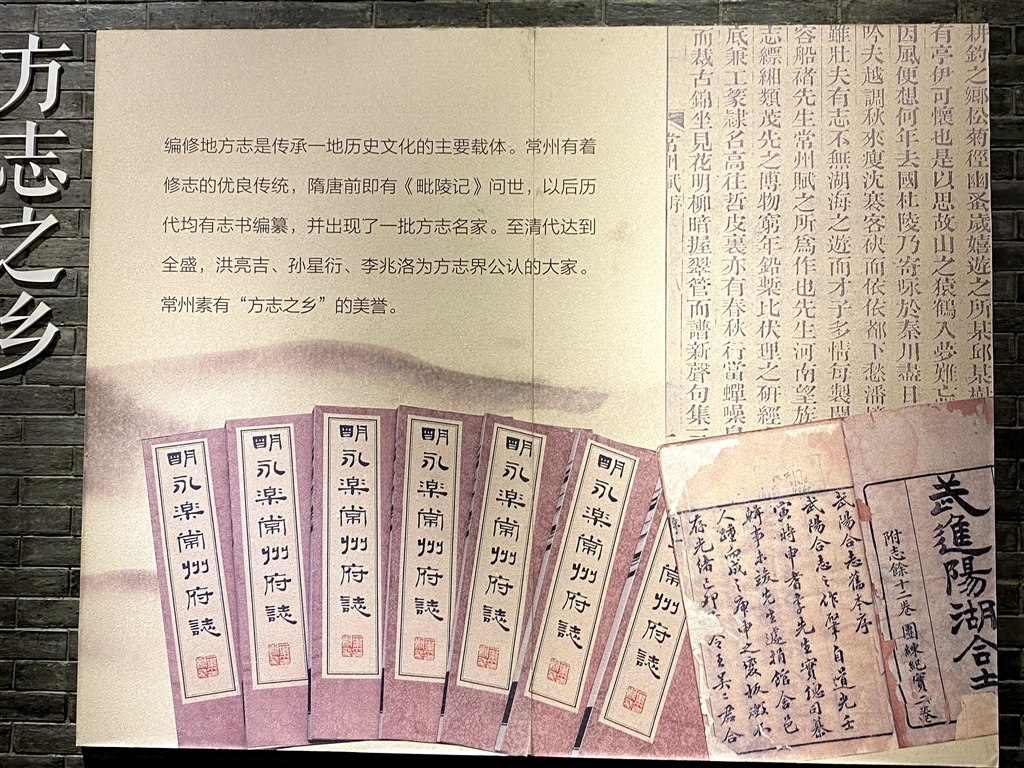 方志之乡
编修地方志是传承一地历史文化的主要载体。常州有着
修志的优良传统，隋唐前即有《毗陵记》问世，以后历
代均有志书编纂，并出现了一批方志名家。至清代达到
全盛，洪亮吉、孙星衍、李兆洛为方志界公认的大家。
常州素有“方志之乡”的美誉。
耕釣之鄉松菊徑幽圣歲嬉遊之所某邱某樹
有亭伊可懷也是以思故山之猿鶴入夢難忘
因風便想何年去國杜陵乃寄咏於秦川盡日
吟夫越調秋來瘦沈寒客袂而依依都下愁潘
雖壯夫有志不無湖海之遊而才子多情每製
容船褚先生常州賦之所爲作也先生河南望族
志縹緗類茂先之博物窮年鉛槧比伏理之研經
底兼工篆隸名高往哲皮裏亦有春秋行當蟬噪
而裁古錦坐見花明柳暗握翠管而譜新聲句集
常州賦序
明永楽常州府誌
明永楽常州府誌
明永楽常州府誌
明永楽常州府誌
明永楽常州府誌
明永楽常州府誌
常州府誌
武陽合志舊本序
武陽合志之作肇自道光壬
寅時申耆李先生實總司纂
輯事未竣先生遽捐館合邑
人踵而成之庚申之變板燬
存光緒己卯
武進陽湖合
附志餘十二卷 團練紀實二卷